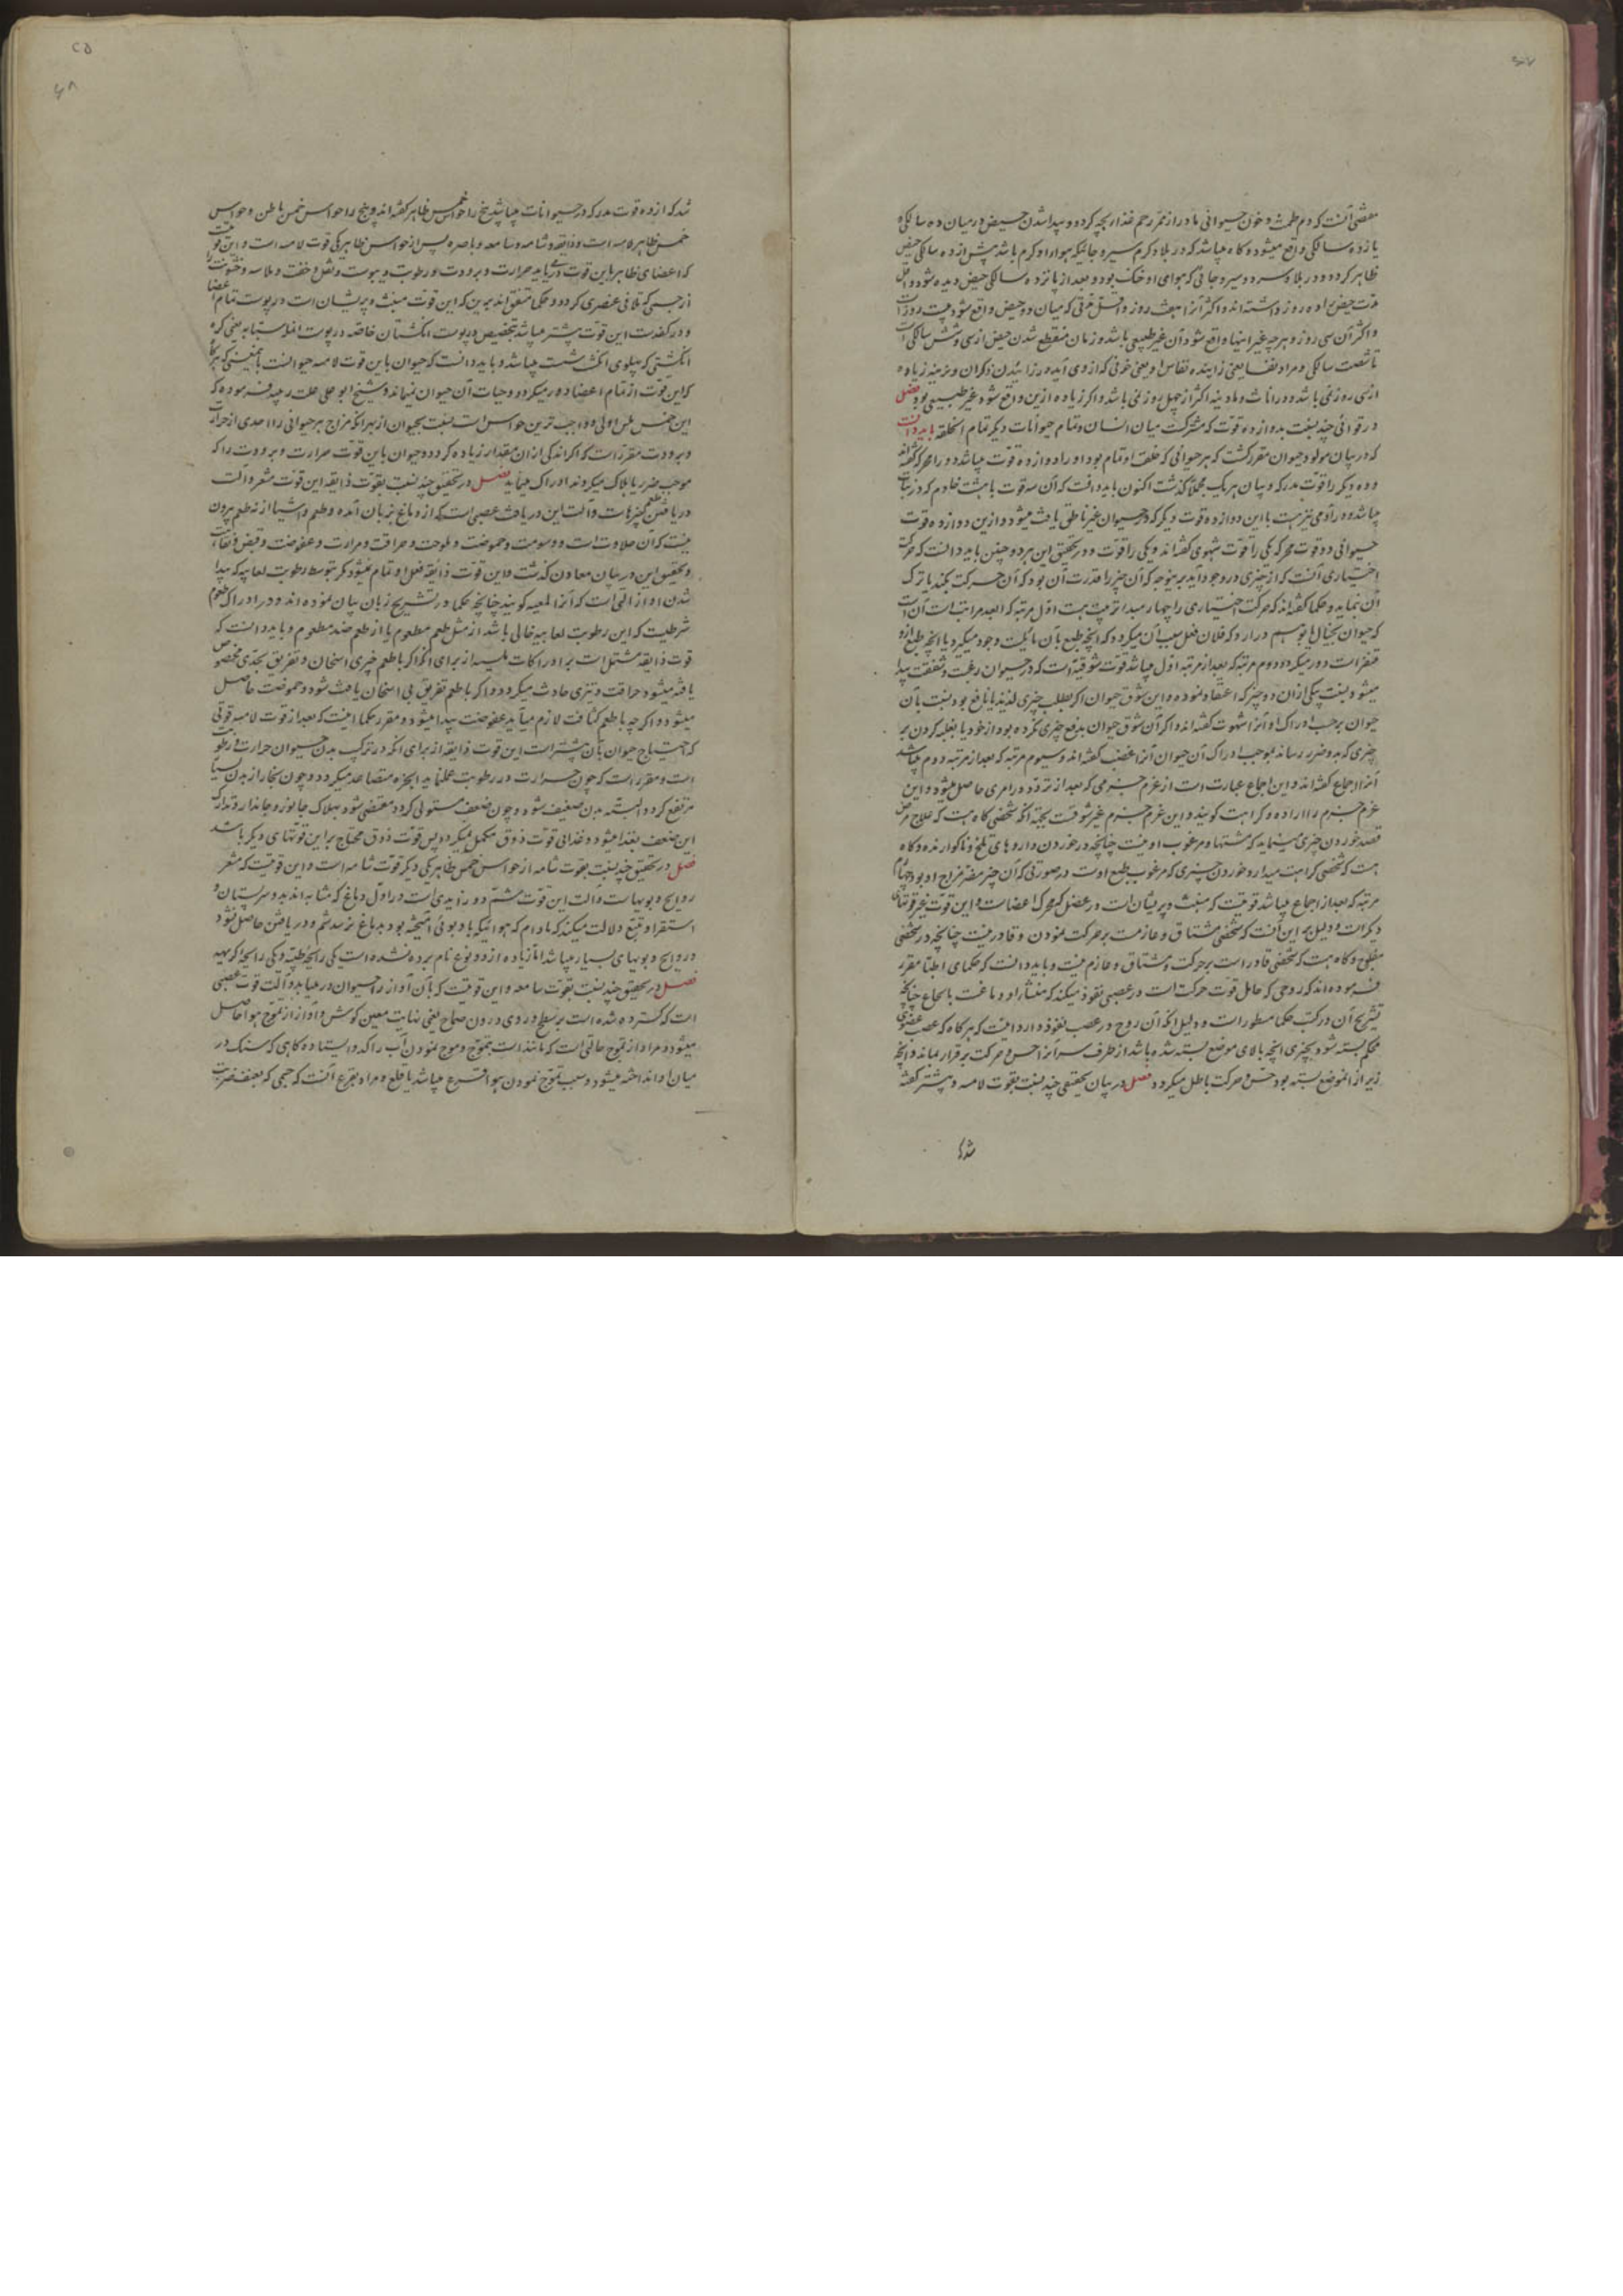 مقتضی آنست که دم طمث و خون حیوانی مادر از ممر رحم غذا بچه گردد و پیدا شدن حیض در میان ده سالگی و
یازده سالگی واقع میشود و گاه میباشد که در بلاد گرم سیر و جائیکه هوای او گرم باشد پیش از ده سالگی حیض
ظاهر گردد و در بلاد سردسیر و جائی که هوای او خنک بود و بعد از پانزده سالگی حیض دیده شود و اقل
مدت حیض را ده روز داشته‌اند و اکثر آنرا هفت روز و اقل مدتی که میان دو حیض واقع شود بیست روز است
و اکثر آن سی روز و هرچه غیر اینها واقع شود آن غیر طبیعی باشد و زمان منقطع شدن حیض از سی و شش سالگی است
تا شصت سالگی و مراد نفسا یعنی زاینده نفاس او یعنی خونی که از وی آید در زائیدن ذکران و نرینه زیاده
از سی روز نمی باشد و در اناث و مادینه اکثر از چهل روز نمی باشد و اگر زیاده ازین واقع شود غیر طبیعی بود فصل
در قوائی چند نسبت بدوازده قوت که مشترکست میان انسان و تمام حیوانات دیگر تمام الخلقه باید دانست
که در بیان مولود حیوان مقرر گشت که هر حیوانی که خلقت او تمام بود او را دوازده قوت میباشد دو را محرکه گفته‌اند
و ده دیگر را قوت مدرکه و بیان هر یک مجملا گذشت اکنون باید دانست که آن سه قوت با هشت خادم که در نبات
میباشد و در آدمی نیز هست با این دوازده قوت دیگر که در حیوان غیر ناطق یافت میشود و ازین دوازده قوت
حیوانی دو قوت محرکه یکی را قوت شهوی گفته‌اند و یکی را قوت و در تحقیق این هر دو چنین باید دانست که حرکت
اختیاری آنست که از چیزی در وجود آید بهر نوع که آن چیز را قدرت آن بود که آن حرکت بکند یا ترک
آن نماید و حکما گفته‌اند که حرکت اختیاری را چهار مبدا ترتیب است اول مرتبه که ابعد مراتبست آن است
که حیوان بخیال یا بوهم در آرد که فلان فعل سبب آن میگردد که آنچه طبع بآن مائلست وجود میگیرد یا آنچه طبع ازو
متنفر است دور میگردد دوم مرتبه که بعد از مرتبه اول میباشد قوت شوقیه است که در حیوان رغبت و شفقت پیدا
میشود نسبت بیکی از آن دو چیز که اعتقاد نموده و این شوق حیوان اگر بطلب چیزی لذیذ یا نافع بود نسبت بآن
حیوان بر حسب ادراک او آنرا شهوت گفته‌اند و اگر آن شوق حیوان بدفع چیزی مکروه بود از خود یا بغلبه کردن بر
چیزی که بدو ضرر رساند بموجب ادراک آن حیوان آنرا غضب گفته‌اند و سیوم مرتبه که بعد از مرتبه دوم میباشد
آنرا اجماع گفته‌اند و این اجماع عبارت است از عزم جزمی که بعد از تردد در امری حاصل میشود و این
عزم جزم را اراده و کراهت گویند و این عزم جزم غیر شوقست بجهة آنکه شخصی گاه هست که علاج مرض
قصد خوردن چیزی مینماید که مشتها و مرغوب او نیست چنانچه در خوردن داروهای تلخ و ناگوارنده و گاه
هست که شخصی کراهت میدارد خوردن چیزی که مرغوب طبع اوست در صورتی که آن چیز مضر مزاج او بود چهارم
مرتبه که بعد از اجماع میباشد قوتیست که منبث و پریشان است در عضل که محرک اعضاست و این قوت غیر قوتهای
دیگر است و دلیل بر این آنست که شخصی مشتاق و عازمست بر حرکت نمودن و قادر نیست چنانچه در شخصی
مفلوج و گاه هست که شخصی قادر است بر حرکت و مشتاق و عازم نیست و باید دانست که حکمای اطبا مقرر
فرموده‌اند که روحی که حامل قوت حرکت است در عصبی نفوذ میکند که منشا او دماغست یا نخاع چنانچه
تشریح آن در کتب حکما مسطور است و دلیل آنکه آن روح در عصب نفوذ دارد اینست که هرگاه که عصب عضوی
محکم بسته شود بچیزی آنچه بالای موضع بسته شده باشد از طرف سر آنرا حس و حرکت برقرار بماند و آنچه
زیر از آن موضع بسته بود حس و حرکت باطل میگردد فصل در بیان تحقیقی چند نسبت بقوت لامسه و پیشتر گفته
شد که
شد که از ده قوت مدرکه که در حیوانات میباشد پنج را حواس خمس ظاهر گفته‌اند و پنج را حواس خمس باطن و حواس
خمس ظاهر لامسه است و ذائقه و شامه و سامعه و باصره پس از حواس ظاهر یکی قوت لامسه است و این قوتیست
که اعضای ظاهر باین قوت در یابد حرارت و برودت و رطوبت و یبوست و ثقل و خفت و ملاسه و خشونت را
از جسمی که تلاقی عنصری گردد و حکما متفق‌اند برین که این قوت منبث و پریشان است در پوست تمام اعضا
و در کف دست این قوت بیشتر میباشد بتخصیص در پوست انگشتان خاصه در پوست انمله سبابه یعنی که
انگشتی که پهلوی انگشت شست میباشد و باید دانست که حیوان باین قوت لامسه حیوانست بامعنی که هرگاه
که این قوت از تمام اعضا دور میگردد حیات آن حیوان نمیماند و شیخ ابو علی علیه رحمه فرموده که
این حس لمس اولی و واجب ترین حواس است نسبت بحیوان از بهر آنکه مزاج هر حیوانی را حدی از حرارت
و برودت مقرر است که اگر اندکی از آن مقدار زیاده گردد و حیوان باین قوت حرارت و برودت را که
موجب ضرر یا هلاک میگردند ادراک مینماید فصل در تحقیق چند نسبت بقوت ذائقه این قوت مشعر و آلت
دریافتن طعم چیزهاست و آلت این دریافت عصبی است که از دماغ بزبان آمده و طعم اشیا از نه طعم بیرون
نیست که آن حلاوت است و دسومت و حموضت و ملوحت و حرافت و مرارت و عفوصت و قبض و تفاهت
و تحقیق این در بیان معادن گذشت و این قوت ذائقه فعل او تمام نمیشود مگر بتوسط رطوبت لعابیه که پیدا
شدن او از آلتی است که آنرا لمعبه گویند چنانچه حکما در تشریح زبان بیان نموده‌اند و در ادراک طعوم
شرطیست که این رطوبت لعابیه خالی باشد از مثل طعم مطعوم یا از طعم ضد مطعوم و باید دانست که
قوت ذائقه مشتمل است بر ادراکات لمسیه از برای آنکه اگر با طعم چیزی اسخان و تفریق بحدی مخصوص
یافته میشود حرافت و تیزی حادث میگردد و اگر با طعم تفریق بی اسخان یافت شود و حموضت حاصل
میشود و اگر چه با طعم کثافت لازم میآید عفوصت پیدا میشود و مقرر حکما اینست که بعد از قوت لامسه قوتی
که احتیاج حیوان بآن بیشتر است این قوت ذائقه از برای آنکه در ترکیب بدن حیوان حرارت و رطوبت
است و مقرر است که چون حرارت در رطوبت عمل نماید ابخره متصاعد میگردد و چون بخار از بدن بسیار
مرتفع گردد البته بدن ضعیف شود و چون ضعف مستولی گردد مفضی شود بهلاک جانور و جاندار و تدارک
این ضعف بغذا میشود و غذا بی قوت ذوق مکمل نمیگردد پس قوت ذوق محتاج براین قوتهای دیگر باشد
فصل در تحقیق چند نسبت بقوت شامه از حواس خمس ظاهر یکی دیگر قوت شامه است و این قوتیست که مشعر
روایح و بویهاست و آلت این قوت مشم دو زایدی است در اول دماغ که مشابه‌اند بدو سر پستان و
استقرا و تتبع دلالت میکند که مادام که هوائیکه با او بوئی آمیخته بود بدماغ نرسد شم و دریافتن حاصل نشود
و روایح و بویهای بسیار میباشد اما زیاده از دو نوع نام برده نشده است یکی رایحه طیبه و یکی رایحه کریهه
فصل در تحقیق چند نسبت بقوت سامعه و این قوتیست که بآن آواز را حیوان در مییابد و آلت قوت عصبی
است که گسترده شده است بر سطح دروی درون صماخ یعنی نهایت معین گوش و آواز از تموج هوا حاصل
میشود و مراد از تموج حالتی است که مانند است بتموج و موج نمودن آب راکد و ایستاده گاهی که سنگ در
میان او انداخته میشود و سبب تموج نمودن هوا قرع میباشد یا قلع و مراد بقرع آنست که جسمی که بعنف ضرب